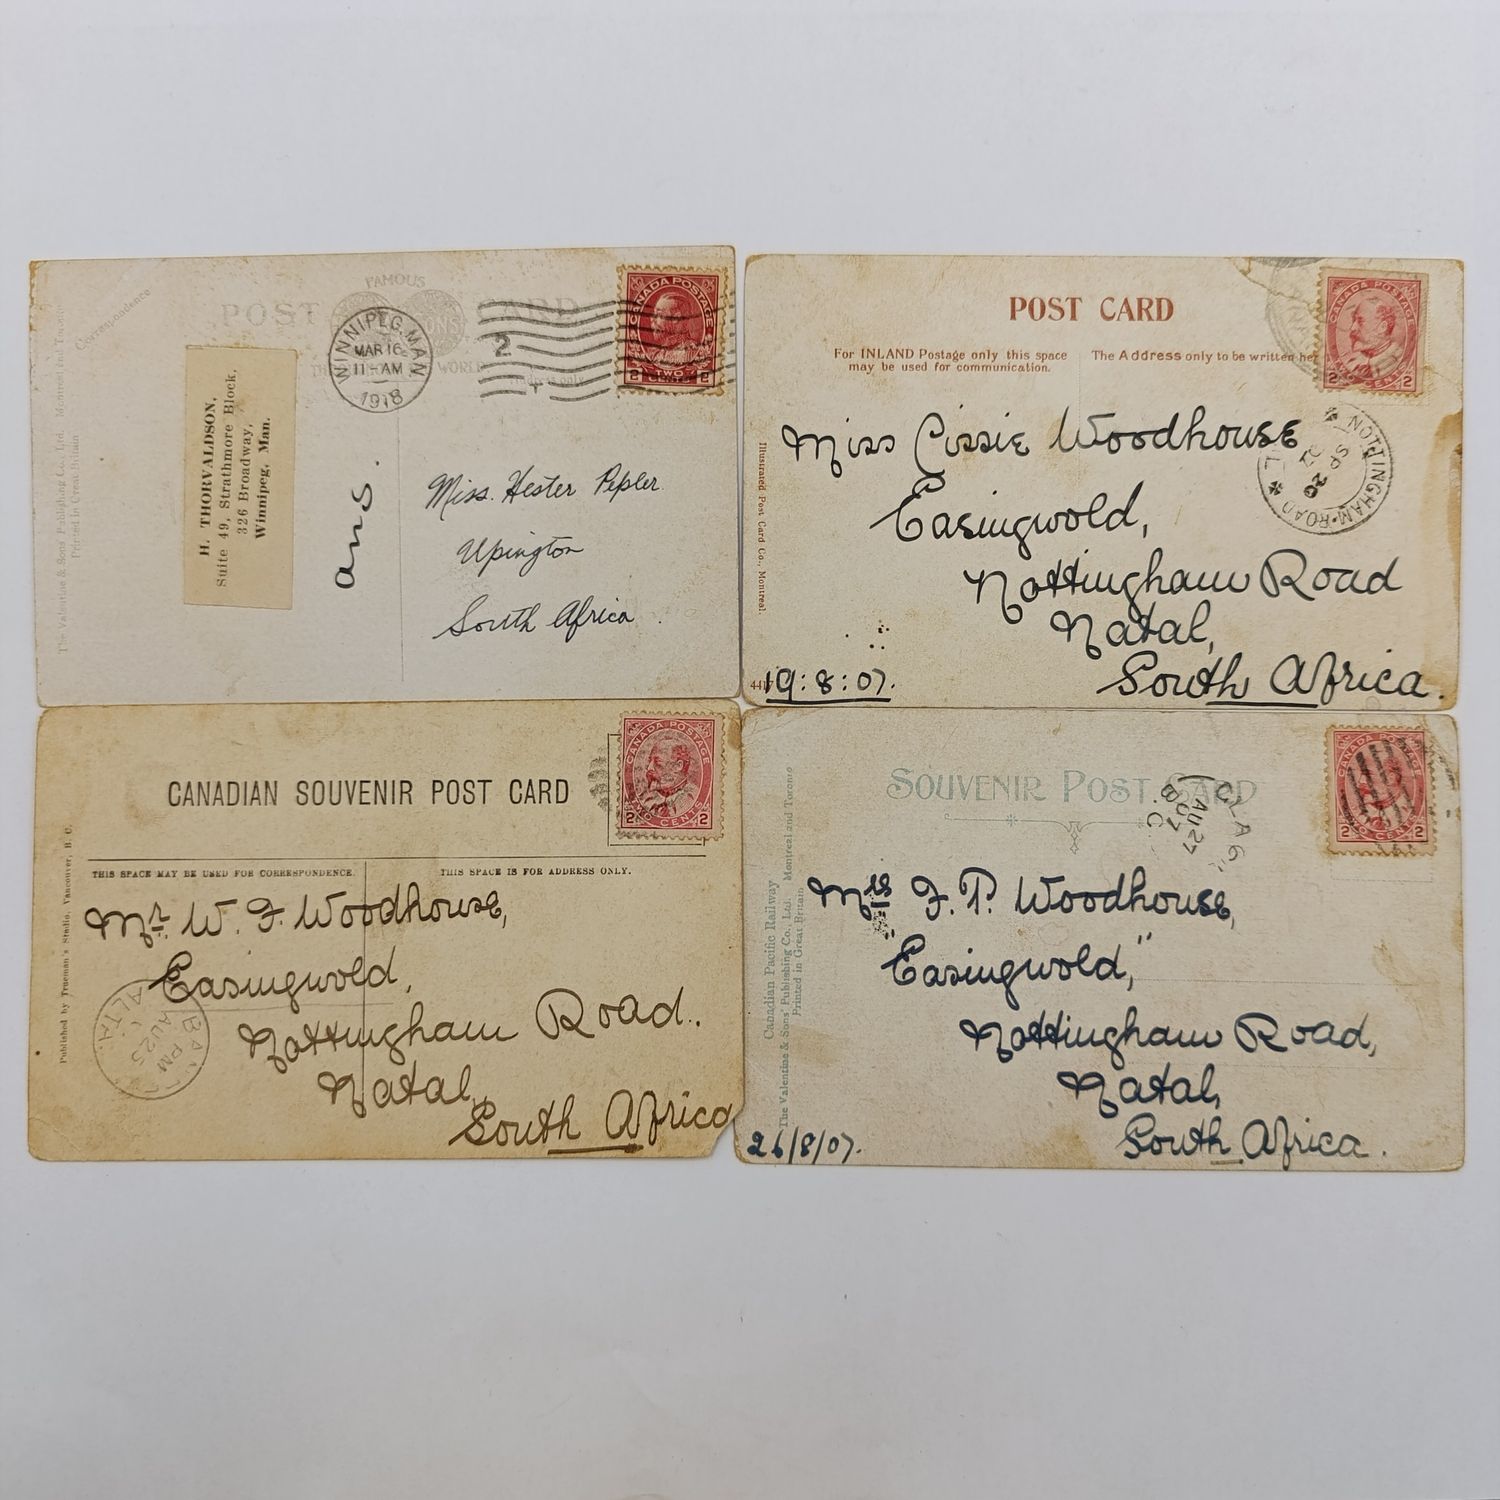 Correspondence
POST CARD
FAMOUS
WORLD
The Valentine & Sons' Publishing Co., Ltd. Montreal and Toronto
Printed in Great Britain
H. THORVALDSON,
Suite 49, Strathmore Block,
326 Broadway,
Winnipeg, Man.
WINNIPEG, MAN
MAR 16
11-AM
1918
2
CANADA POSTAGE
2 TWO CENTS 2
ans.
Miss. Hester Pepler
Upington
South Africa.
POST CARD
For INLAND Postage only this space
may be used for communication.
The Address only to be written he
CANADA POSTAGE
2 CENTS 2
Illustrated Post Card Co., Montreal.
Miss Cissie Woodhouse
Easingwold,
Nottingham Road
Natal,
South Africa.
NOTTINGHAM-ROAD
SP 20
07
19:8:07.
CANADIAN SOUVENIR POST CARD
CANADA POSTAGE
2 TWO CENTS 2
THIS SPACE MAY BE USED FOR CORRESPONDENCE.
THIS SPACE IS FOR ADDRESS ONLY.
Published by Trueman's Studio, Vancouver, B. C.
Mr. W. F. Woodhouse,
Easingwold,
Nottingham Road.
Natal,
South Africa
ALTA.
PM
AU 25
SOUVENIR POST CARD
CANADA POSTAGE
2 TWO CENTS 2
AU 27
07
B.C.
Canadian Pacific Railway
The Valentine & Sons' Publishing Co., Ltd. Montreal and Toronto
Printed in Great Britain
Mrs F. P. Woodhouse,
"Easingwold,"
Nottingham Road,
Natal,
South Africa.
26/8/07.